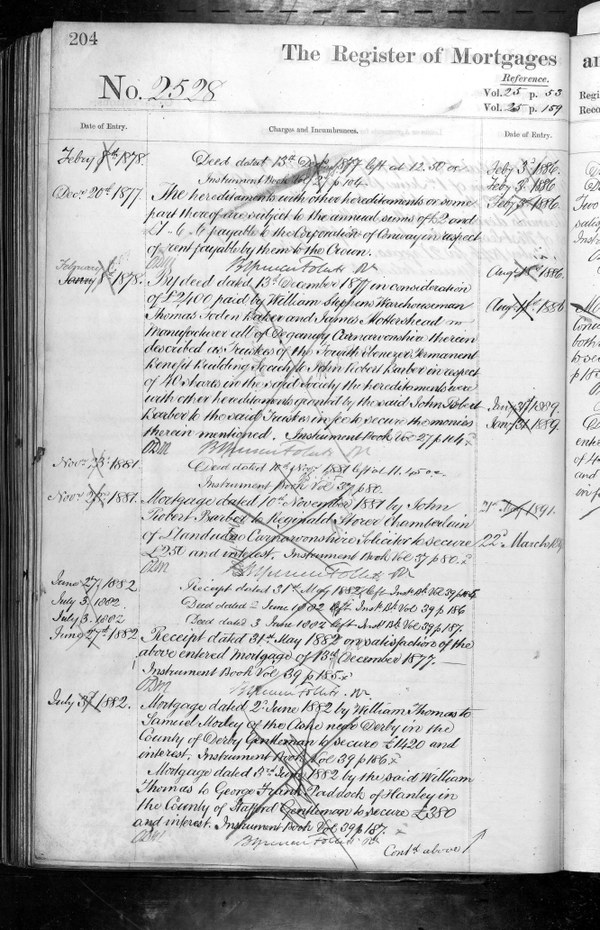 204
The Register of Mortgages
No. 2528
Reference.
Vol. 25 p. 53
Vol. 25 p. 159
Date of Entry.
Charges and Incumbrances.
Date of Entry.
Febry 8th 1878.
Deed dated 13th Decr 1877 left at 12.50
Instrument Book Vol 27 p 104.
Feby 3d 1886
Feby 3 1886
Feby 3 1886
Decr 20th 1877.
The hereditaments with other hereditaments or some
part thereof are subject to the annual sums of £2 and
£1-6-6 payable to the Corporation of Conway in respect
of rent payable by them to the Crown.
February
1878.
Augt 1886.
By deed dated 13th December 1877 in consideration
of £2400 paid by William Stephens Warehouseman
Augt 1886
Thomas Foden Baker and James Mottershead
Manufacturer all of Deganwy Carnarvonshire therein
described as Trustees of the Fourth Ebenezer Permanent
Benefit Building Society to John Robert Barbor in respect
of 40 shares in the said Society the hereditaments were
with other hereditaments granted by the said John Robert
Barbor to the said Trustees in fee to secure the monies
therein mentioned. Instrument Book Vol 27 p 104.
1889.
1889.
Novr 1881
Deed dated 10th Novr 1881 left at 11.45
Instrument Book Vol 37 p 80.
Novr 1881.
Mortgage dated 10th November 1881 by John
Robert Barbor to Reginald Storer Chamberlain
of Llandudno Carnarvonshire Solicitor to secure
£250 and interest. Instrument Book Vol 37 p 80.
1891.
22d March
June 27, 1882
Receipt dated 31st May 1882 left Inst Bk Vol 39 p 185
July 3, 1882.
Deed dated 2 June 1882 left Inst Bk Vol 39 p 186
July 3. 1882
Deed dated 3 June 1882 left Inst Bk Vol 39 p 187.
June 27th 1882.
Receipt dated 31st May 1882 on satisfaction of the
above entered Mortgage of 13th December 1877.
Instrument Book Vol 39 p 185.
July 3d 1882.
Mortgage dated 2d June 1882 by William Thomas to
Samuel Morley of the Ashe near Derby in the
County of Derby Gentleman to secure £1420 and
interest. Instrument Book Vol 39 p 186
Mortgage dated 3rd June 1882 by the said William
Thomas to George Frank Paddock of Hanley in
the County of Stafford Gentleman to secure £380
and interest. Instrument Book Vol 39 p 187.
Contd above